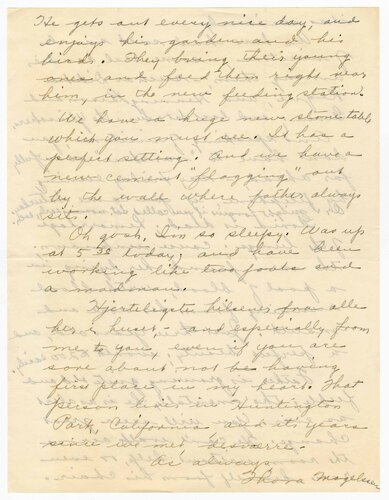 He gets out every nice day, and
enjoys his garden and his
birds. They bring their young
ones and feed them right near
him, in the new feeding station.
We have a huge new stone table
which you must see. It has a
perfect setting. And we have a
new cement "flagging" out
by the wall where father always
sit.
Oh gosh, I'm so sleepy. Was up
at 5:30 today, and have been
working like two fools and
a madman.
Hjerteligste hilsener fra alle
her i huset - and especially from
me to you, even if you are
sore about not be having
first place in my heart. That
person lives in Huntington
Park, California and it's years
since we met, desverre.
As always
Thora Magelssen